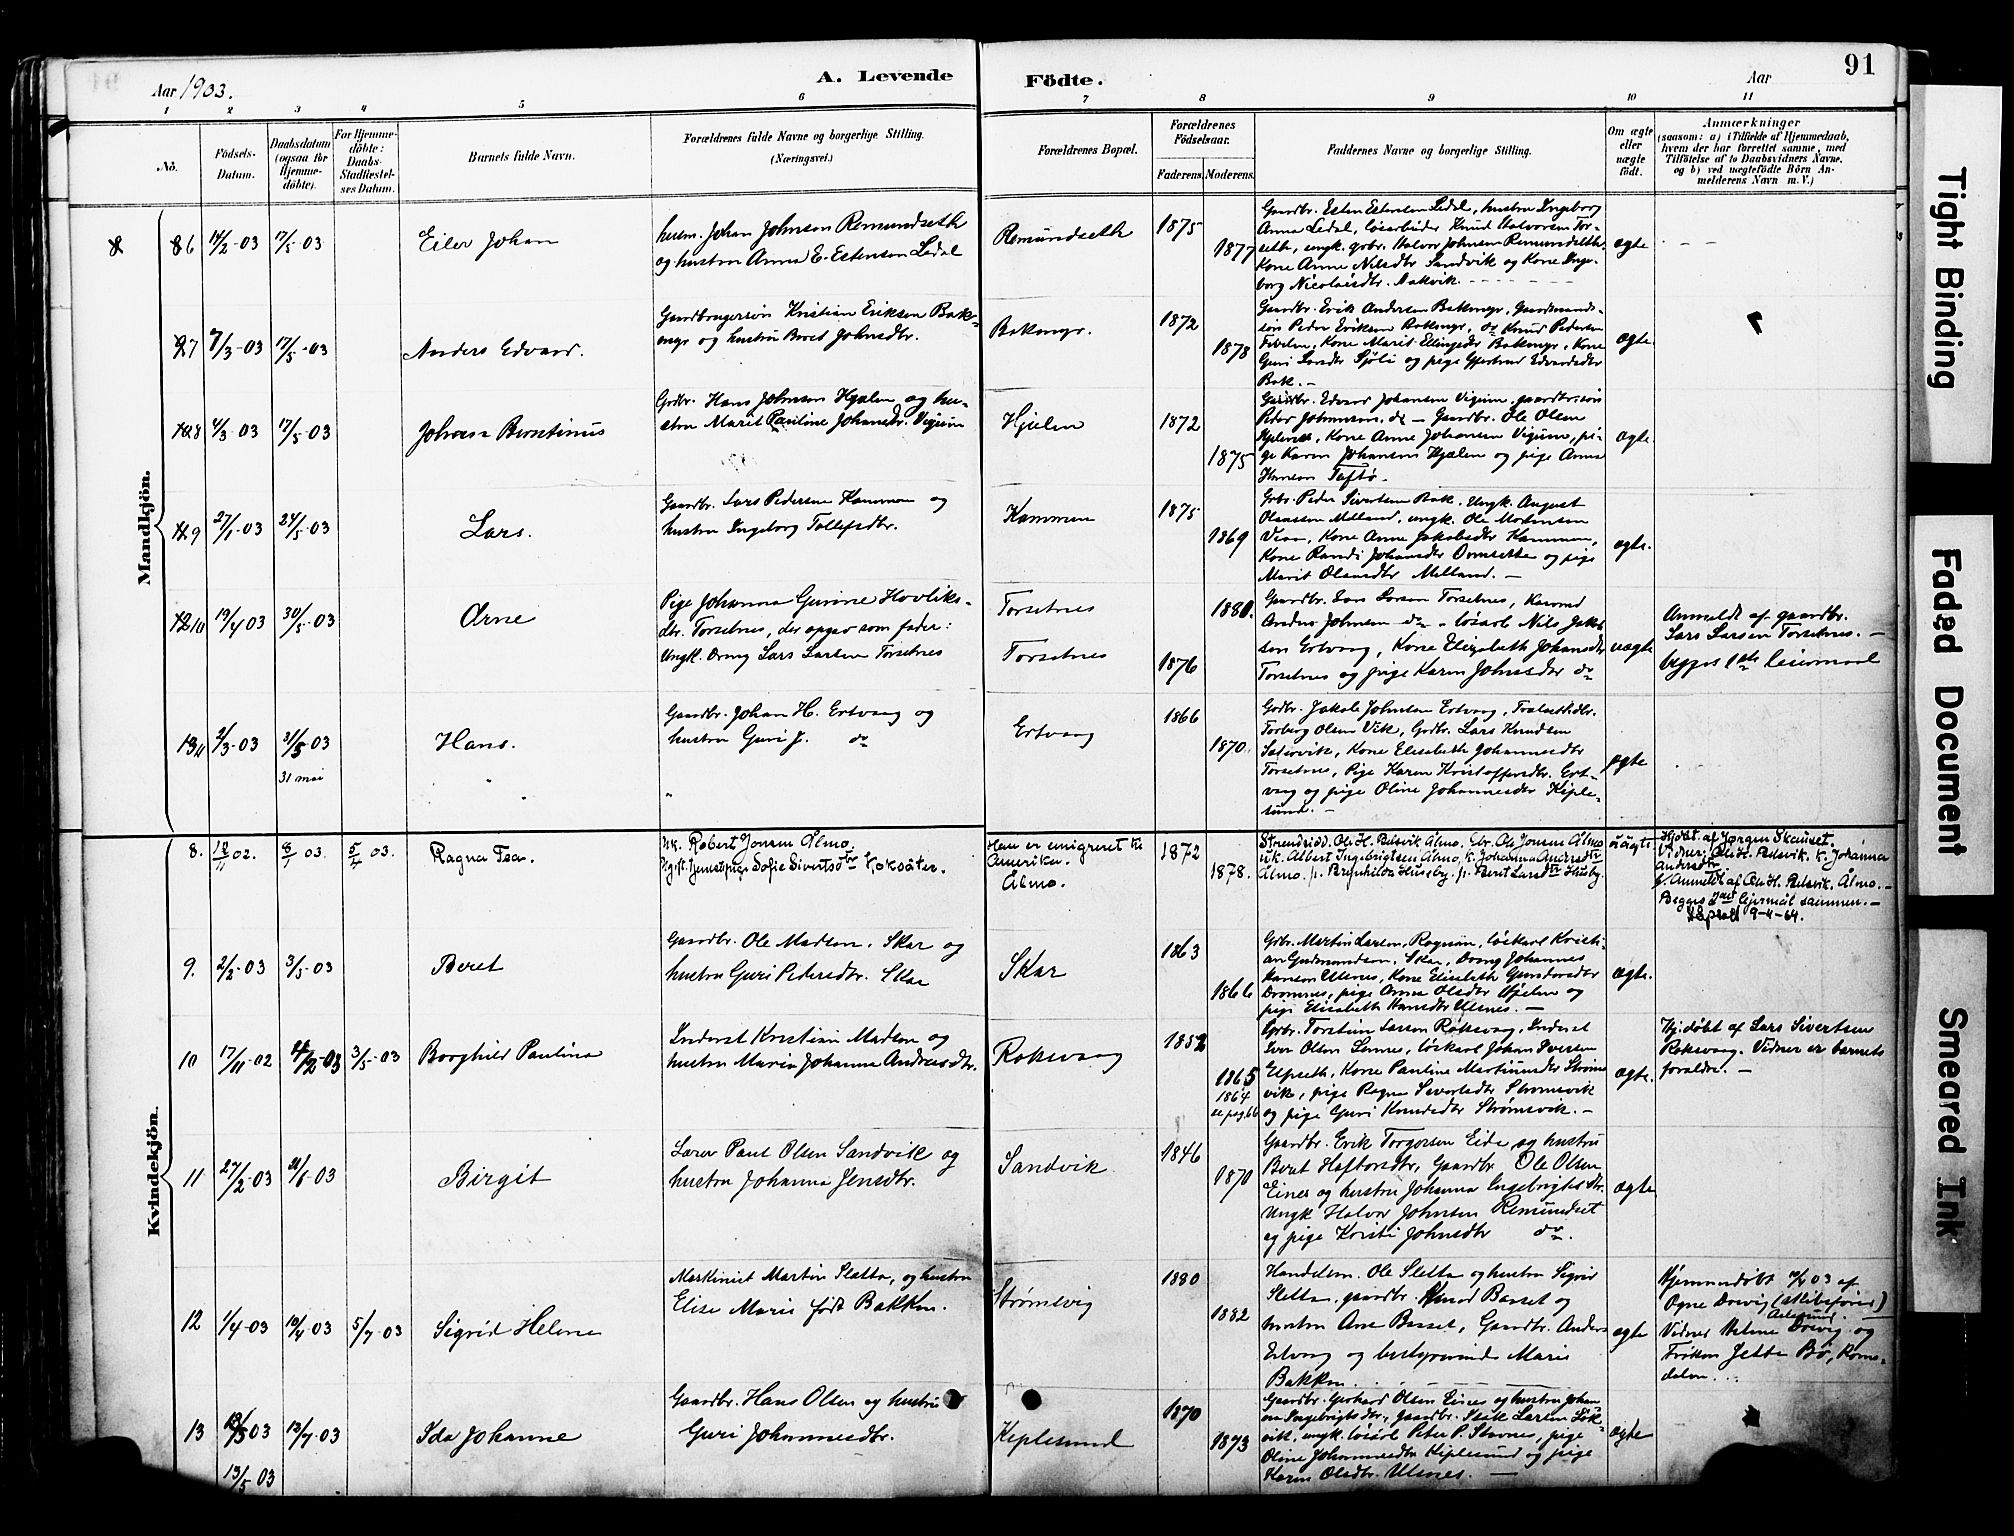 Aar 1903.
A. Levende
Födte.
Aar
91
1 2 3 4 5 6 7 8 9 10 11
No.
Födsels-
Datum.
Daabsdatum
(ogsaa for
Hjemme-
döbte).
For Hjemme-
döbte:
Daabs-
Stadfæstel-
ses Datum.
Barnets fulde Navn.
Forældrenes fulde Navne og borgerlige Stilling.
(Næringsvei.)
Forældrenes Bopæl.
Forældrenes
Födselsaar.
Faderens. Moderens.
Faddernes Navne og borgerlige Stilling.
Om ægte
eller
uægte
født.
Anmærkninger
(saasom: a) i Tilfælde af Hjemmedaab,
hvem der har forrettet samme, med
Tilföielse af to Daabsvidners Navne,
og b) ved uægtefödte Börn An-
melderens Navn m. V.)
Mandkjön.
6 14/2-03 17/5-03
Eiler Johan
husm. Johan Johnson Remundseth
og hustru Anna E. Estensen Ledal
Remundseth
1875
1877
Gaardbr. Esten Estensen Ledal, hustru Ingeborg
Anna Ledal, løsarbeider Knud Halvorsen Tor-
seth, ungk. grbr. Halvor Johnsen Remundseth,
Kone Anne Nilsdtr Sandvik og Kone Inge-
borg Nicolaisdtr. Aakvik.
ægte
7 7/3-03 17/5-03
Anders Edvard.
Gaardbrugersøn Kristian Eriksen Bak-
myr og hustru Beret Johnsdtr.
Bakmyr.
1872
1878
Gaardbr. Erik Andersen Bakmyr, Gaardmands-
søn Peder Eriksen Bakmyr, do Knud Pedersen
Kone Marit Ellingsdtr Bakmyr, Kone
Guri Larsdtr Sjøli og pige Gjertrud Edvardsdtr
Bak. -
ægte
8 4/3-03 17/5-03
Johan Berntinus
Grdbr. Hans Johnson Hjelen og hu-
stru Marit Pauline Johansdtr. Vigum
Hjelen
1872
1875
Gaardbr. Edvard Johansen Vigum, gaardbr.søn
Peter Johannsen, do - Gaardbr. Ole Olsen
Kone Anne Johansen Vigum, pi-
ge Karen Johansen Hjelen og pige Anna
Hansen Tøftø.
ægte.
9 27/1-03 24/5-03
Lars.
Gaardbr. Lars Pedersen Kammen og
hustru Ingeborg Tollefsdtr.
Kammen
1875
1869
Grbr. Peder Sivertsen Bak. Ungk. August
Olaussen Melland, ungk. Ole Mortensen
Kone Anne Jakobsdtr Kammen,
Kone Randi Johansdtr Ormsettra og pige
Marit Olausdtr Melland. -
ægte.
10 19/4 03 30/5-03
Arne
Pige Johanna Gurine Hovliks-
dtr. Torsetnes, der opgav som fader:
Ungk. Dreng Lars Larsen Torsetnes
Torsetnes
Torsetnes
1880.
1876
Gaardbr. Lars Larsen Torsetnes,
Anders Johnsen do - løsarb Nils Jakob-
sen Ertvaag, Kone Elizabeth Johansdtr
Torsetnes og pige Karen Johnsdtr do
uægte
Anmeldt af gaardbr.
Lars Larsen Torsetnes. -
begges 1ste leiermaal
11 2/3-03 31/5-03
31 mai
Hans.
Gaardbr. Johan H. Ertvaag og
hustru Guri J. do
Ertvaag
1866
1870.
Grdbr. Jakob Johnsen Ertvaag,
Torberg Olsen Vik, Grdbr. Lars Knudsen
Kone Elisabeth Johannesdtr
Torsetnes, Pige Karen Kristoffersdtr. Ert-
vaag og pige Oline Johannesdtr Kiple-
sund. -
ægte
Kvindekjön.
8. 18/11 02. 8/1 03. 5/4 03.
Ragna Isa.
Uk. Robert Jonsen Ålmo.
Ugift tjenestpige Sofie Sivertsdtr Koksæter.
Han er emigreret til
Amerika.
Ålmo.
1872
1878.
Ole H. Belsvik Ålmo. Gbr. Ole Jonsen Ålmo
uk. Albert Ingebrigtsen Ålmo, k. Johanna Andersdtr
Ålmo. p. Brynhilda Husby. p. Beret Larsdtr Husby.
uægte
Hjdøbt. af Jørgen Skauset.
Vidner: Ole H. Belsvik. k. Johanna
Andersdtr
Anmeldt af Ole H. Belsvik. Ålmo. -
Begges lejermål sammen. -
9-4-64.
9. 2/2-03 3/5-03
Beret
Gaardbr. Ole Madsen. Skar og
hustru Guri Pedersdtr. Skar
Skar
1863
1866
Grbr. Martin Larsen, Ragnøen, løskarl Kristi-
an Gudmundsen, Skar, Dreng Johannes
Hansen Ulsnes, Kone Elisabeth Gundersdtr
Drømnes, pige Anna Olsdtr Hjelen og
pige Elisabeth Hansdtr Ulsnes. -
ægte.
10 17/11-02 4/2-03 3/5-03
Borghild Paulina
Inderst Kristian Madsen og
hustru Maria Johanna Andreasdtr.
Roksvaag
1852
1865
1864
se pag 66
Grbr. Torstein Larsen Roksvaag, Inderst
Iver Olsen løskarl Johan Iversen
Elpseth, Kone Pauline Martinusdtr Strøms-
vik, pige Ragna Sivertsdtr Strømsvik
og pige Guri Knudsdtr Strømsvik. -
ægte.
Hjdøbt af Lars Sivertsen
Roksvaag. Vidner er barnets
forældre. -
11 27/2-03 21/6-03
Birgit
Lærer Paul Olsen Sandvik og
hustru Johanna Jensdtr.
Sandvik
1846
1870
Gaardbr. Erik Torgersen Eide og hustru
Beret Haftorsdtr, Gaardbr. Ole Olsen
Eines og hustru Johanna Ingebrigtsdtr.
Ungk Halvor Johnsen Remundset
og pige Kristi Johnsdtr do.
ægte
12 1/4-03 10/4-03 5/7-03
Sigrid Helene
Maskinist Martin Sletta, og hustru
Elise Marie født Bakken.
Strømsvig
1880
1882
Handelsm. Ole Sletta og hustru Sigrid
Sletta, gaardbr. Knud Basset og
hustru Ane Basset, Gaardbr. Anders
Ertvaag og Marie
Bakken.
ægte
Hjemmedøbt 10/4 03 af
Ogne Drevig (skibsfører)
Aalesund.
Vidner Helene Drevig og
Frøken Jetta Bø, Roms-
dalen.
13 13/5 03 12/7-03
13/5 03
Ida Johanne
Gaardbr. Hans Olsen og hustru
Guri Johannesdtr.
Kiplesund
1870
1873
Gaardbr. Gerhard Olsen Eines og hustru Johan-
na Ingebrigtsdtr, gaardbr. Isak Larsen Løk-
vik, ungk. løsarb Peter P. Stavnes, pige
Oline Johannesdtr Kiplesund og pige
Karen Olsdtr. Ulsnes. -
ægte
Tight Binding
Faded Document
Smeared Ink